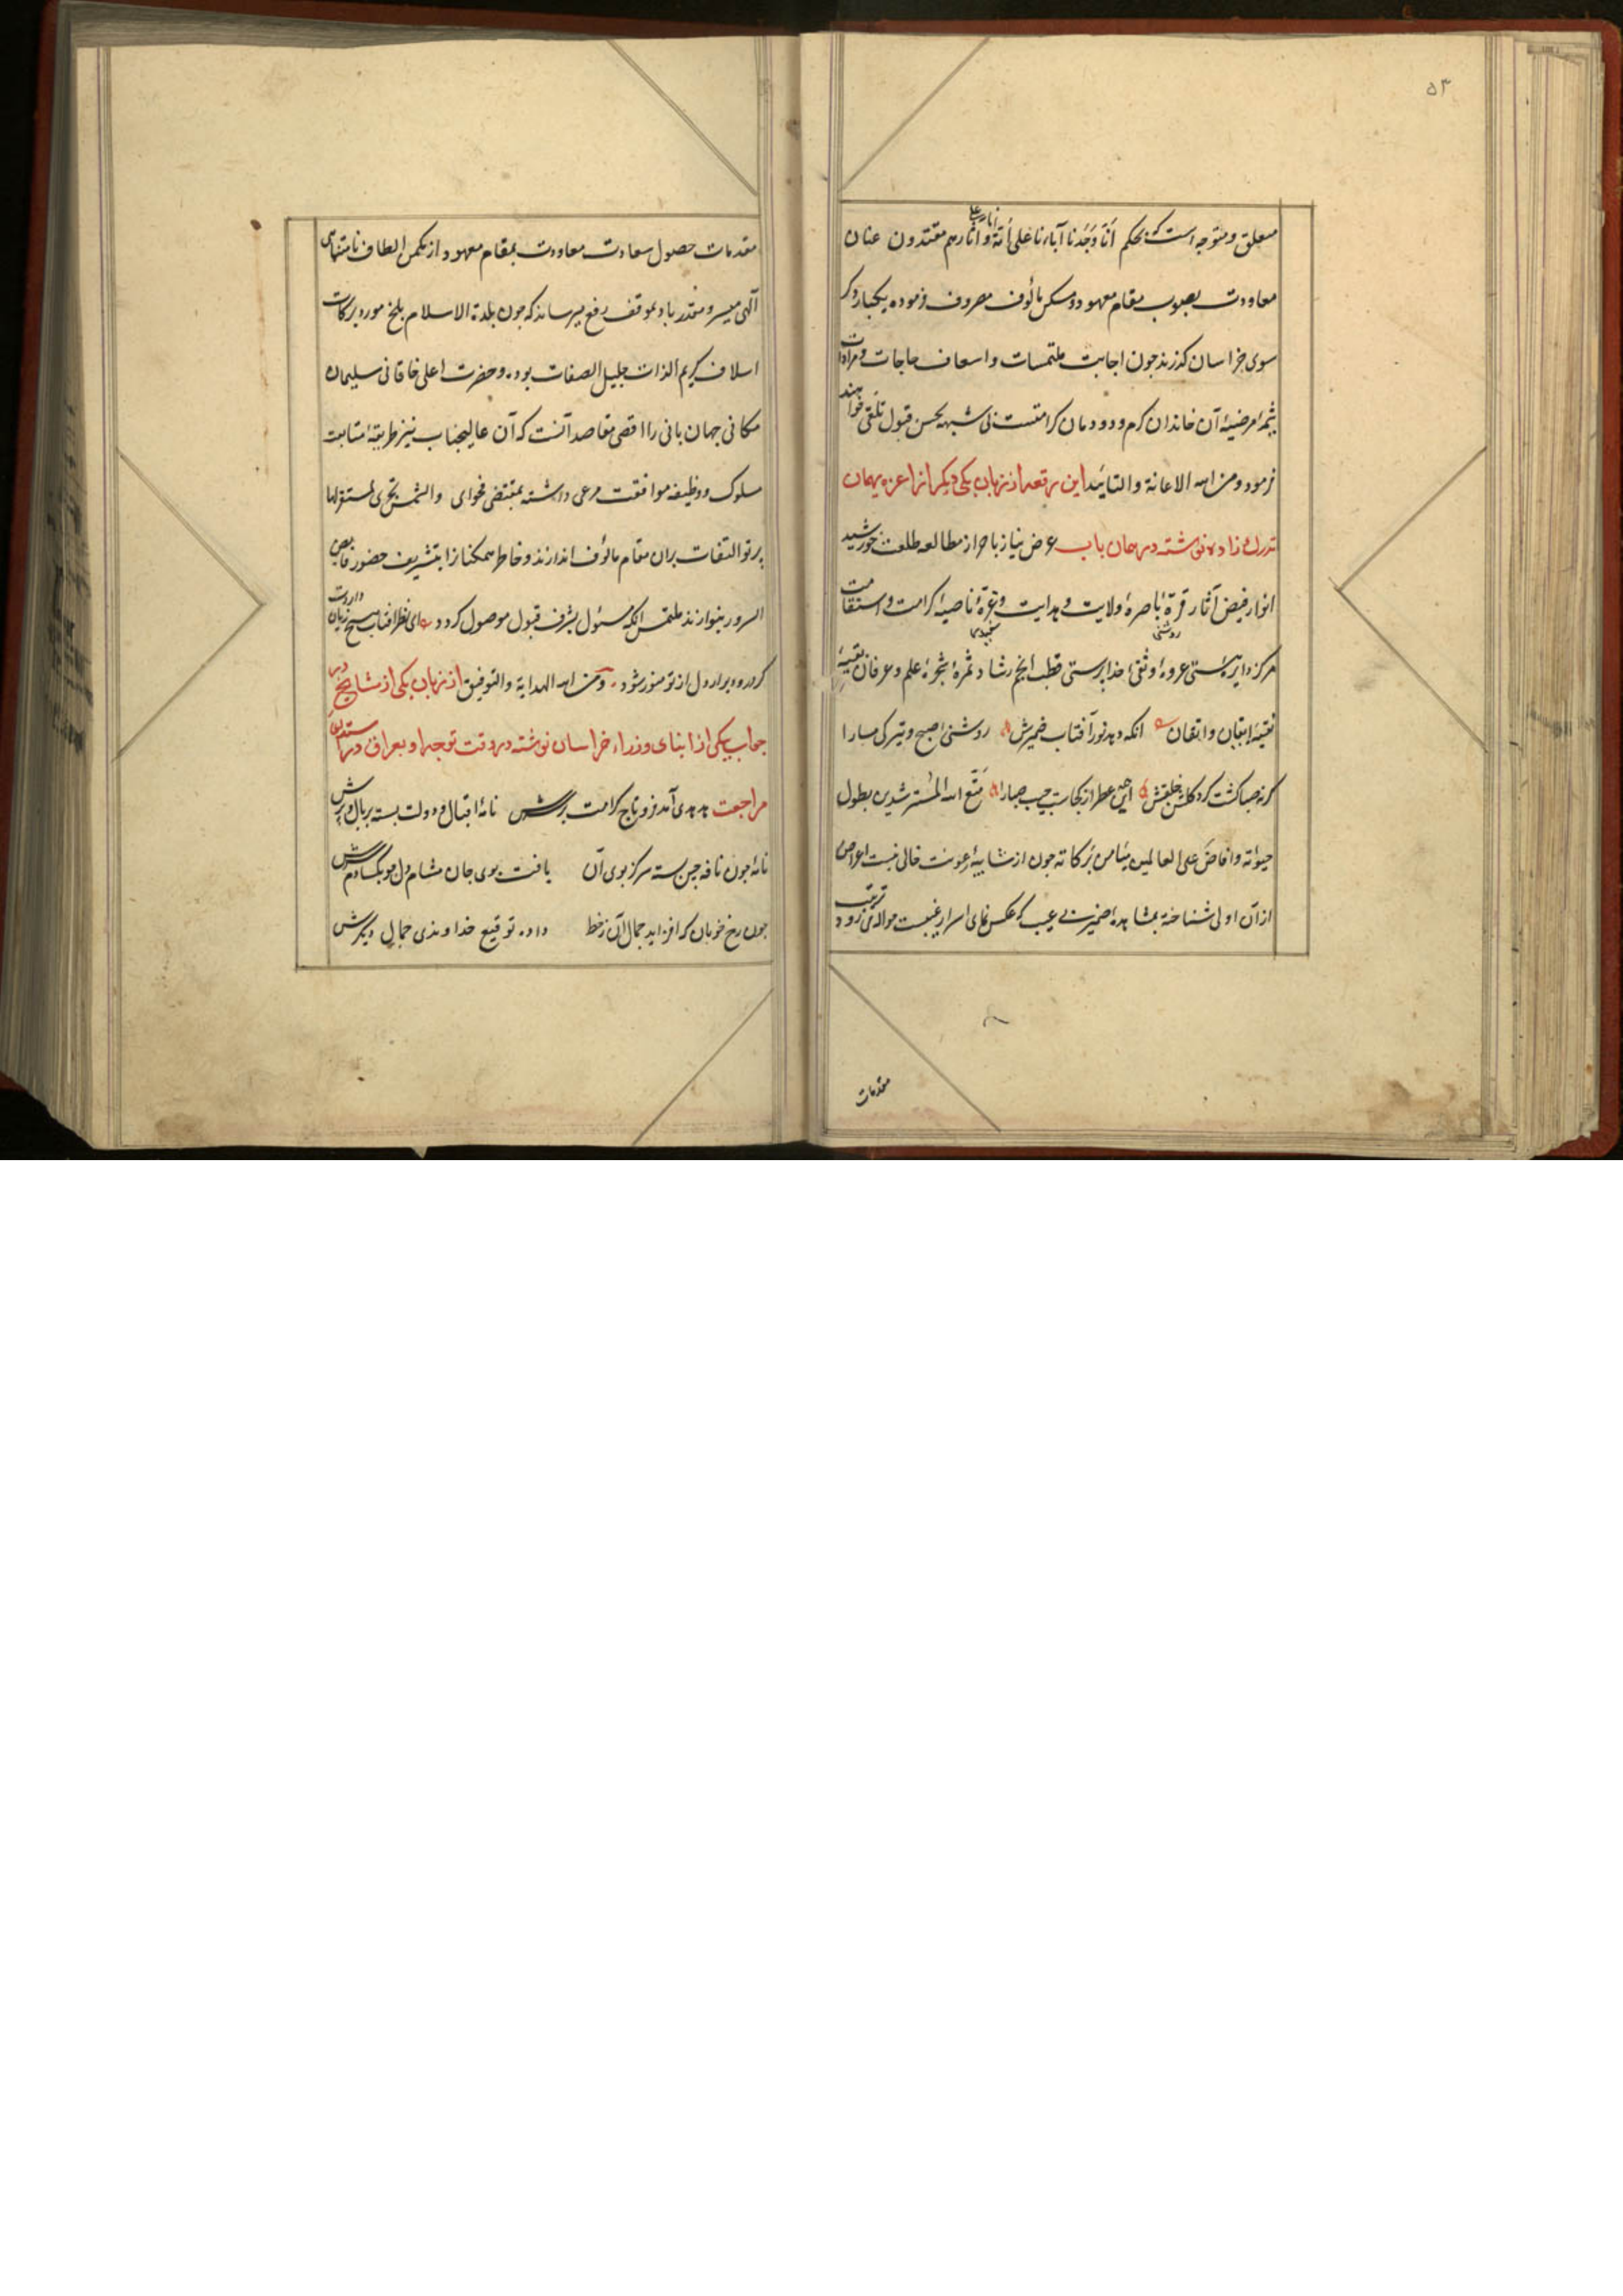 ۵۳
متعلق و متوجه است که بحکم انا وجدنا آباءنا علی امة و انا علی آثارهم مقتدون عنان
معاودت بصوب مقام معهود و مسکن مالوف مصروف فرموده یکبار دکر
سوی خراسان کذرند چون اجابت ملتمسات و اسعاف حاجات و مرادات
شیمهٔ مرضیهٔ آن خاندان کرم و دودمان کرامتست بی شبهه بحسن قبول تلقی خواهند
فرمود و من الله الاعانة والتائید این رقعه از زبان یکی دیکر از اعزه بهمان
بزرک زاده نوشته در همان باب عرض نیاز باحراز مطالعه طلعت خورشید
انوار فیض آثار قرهٔ باصرهٔ ولایت و هدایت و غرهٔ ناصیهٔ کرامت و استقامت
روشنی سپیدی
مرکز دایرهٔ هستی عروهٔ وثقی خدا پرستی قطب انجم رشاد ثمرهٔ شجرهٔ علم و عرفان
نقیبهٔ ایقان و اتقان انکه دهد نور آفتاب ضمیرش روشنی صبح و تیرکی مسا را
کر نه صبا کشت کرد کلشن خلقش این همه عطر از کجاست جیب صبا را متع الله المسترشدین بطول
حیوته و افاض علی العالمین میامن برکاته چون از شایبهٔ رعونت خالی نیست اعراض
از آن اولی شناخته بمشاهدهٔ ضمیر بی عیب که عکس نمای اسرار غیبست حواله می رود ترتیب
مقدمات
مقدمات حصول سعادت معاودت بمقام معهود از مکمن الطاف نامتناهی
الهی میسر و مقدر باد بموقف رفع میرساند که چون بلدة الاسلام بلخ مورد برکات
اسلاف کریم الذات جلیل الصفات بوده و حضرت اعلی خاقانی سلیمان
مکانی جهان بانی را اقصی مقاصد آنست که آن عالیجناب نیز طریقهٔ متابعت
مسلوک و وظیفه موافقت مرعی داشته بمقتضی فحوای والشمس تجری لمستقر لها
پرتو التفات بران مقام مالوف اندازند و خاطر همکنانرا بتشریف حضور فایض
السرور بنوازند ملتمس انکه مسئول بشرف قبول موصول کردد ع ای نظر آفتاب هیچ زیان داردت
کر در و دیوار دل از تو منور شود و من الله الهدایة والتوفیق از زبان یکی از مشایخ در
جواب یکی از ابنای وزراء خراسان نوشته در وقت توجه او بعراق در استدعای
مراجعت هدهدی آمد فرو تاج کرامت بر سرش نامهٔ اقبال و دولت بسته بر بال و پرش
نامهٔ چون نافهٔ چین بسته سر کز بوی آن یافت بوی جان مشام دل چو بکشادم سرش
چون رخ خوبان که افزاید جمال آن ز خط داده توقیع خداوندی جمال دیکرش